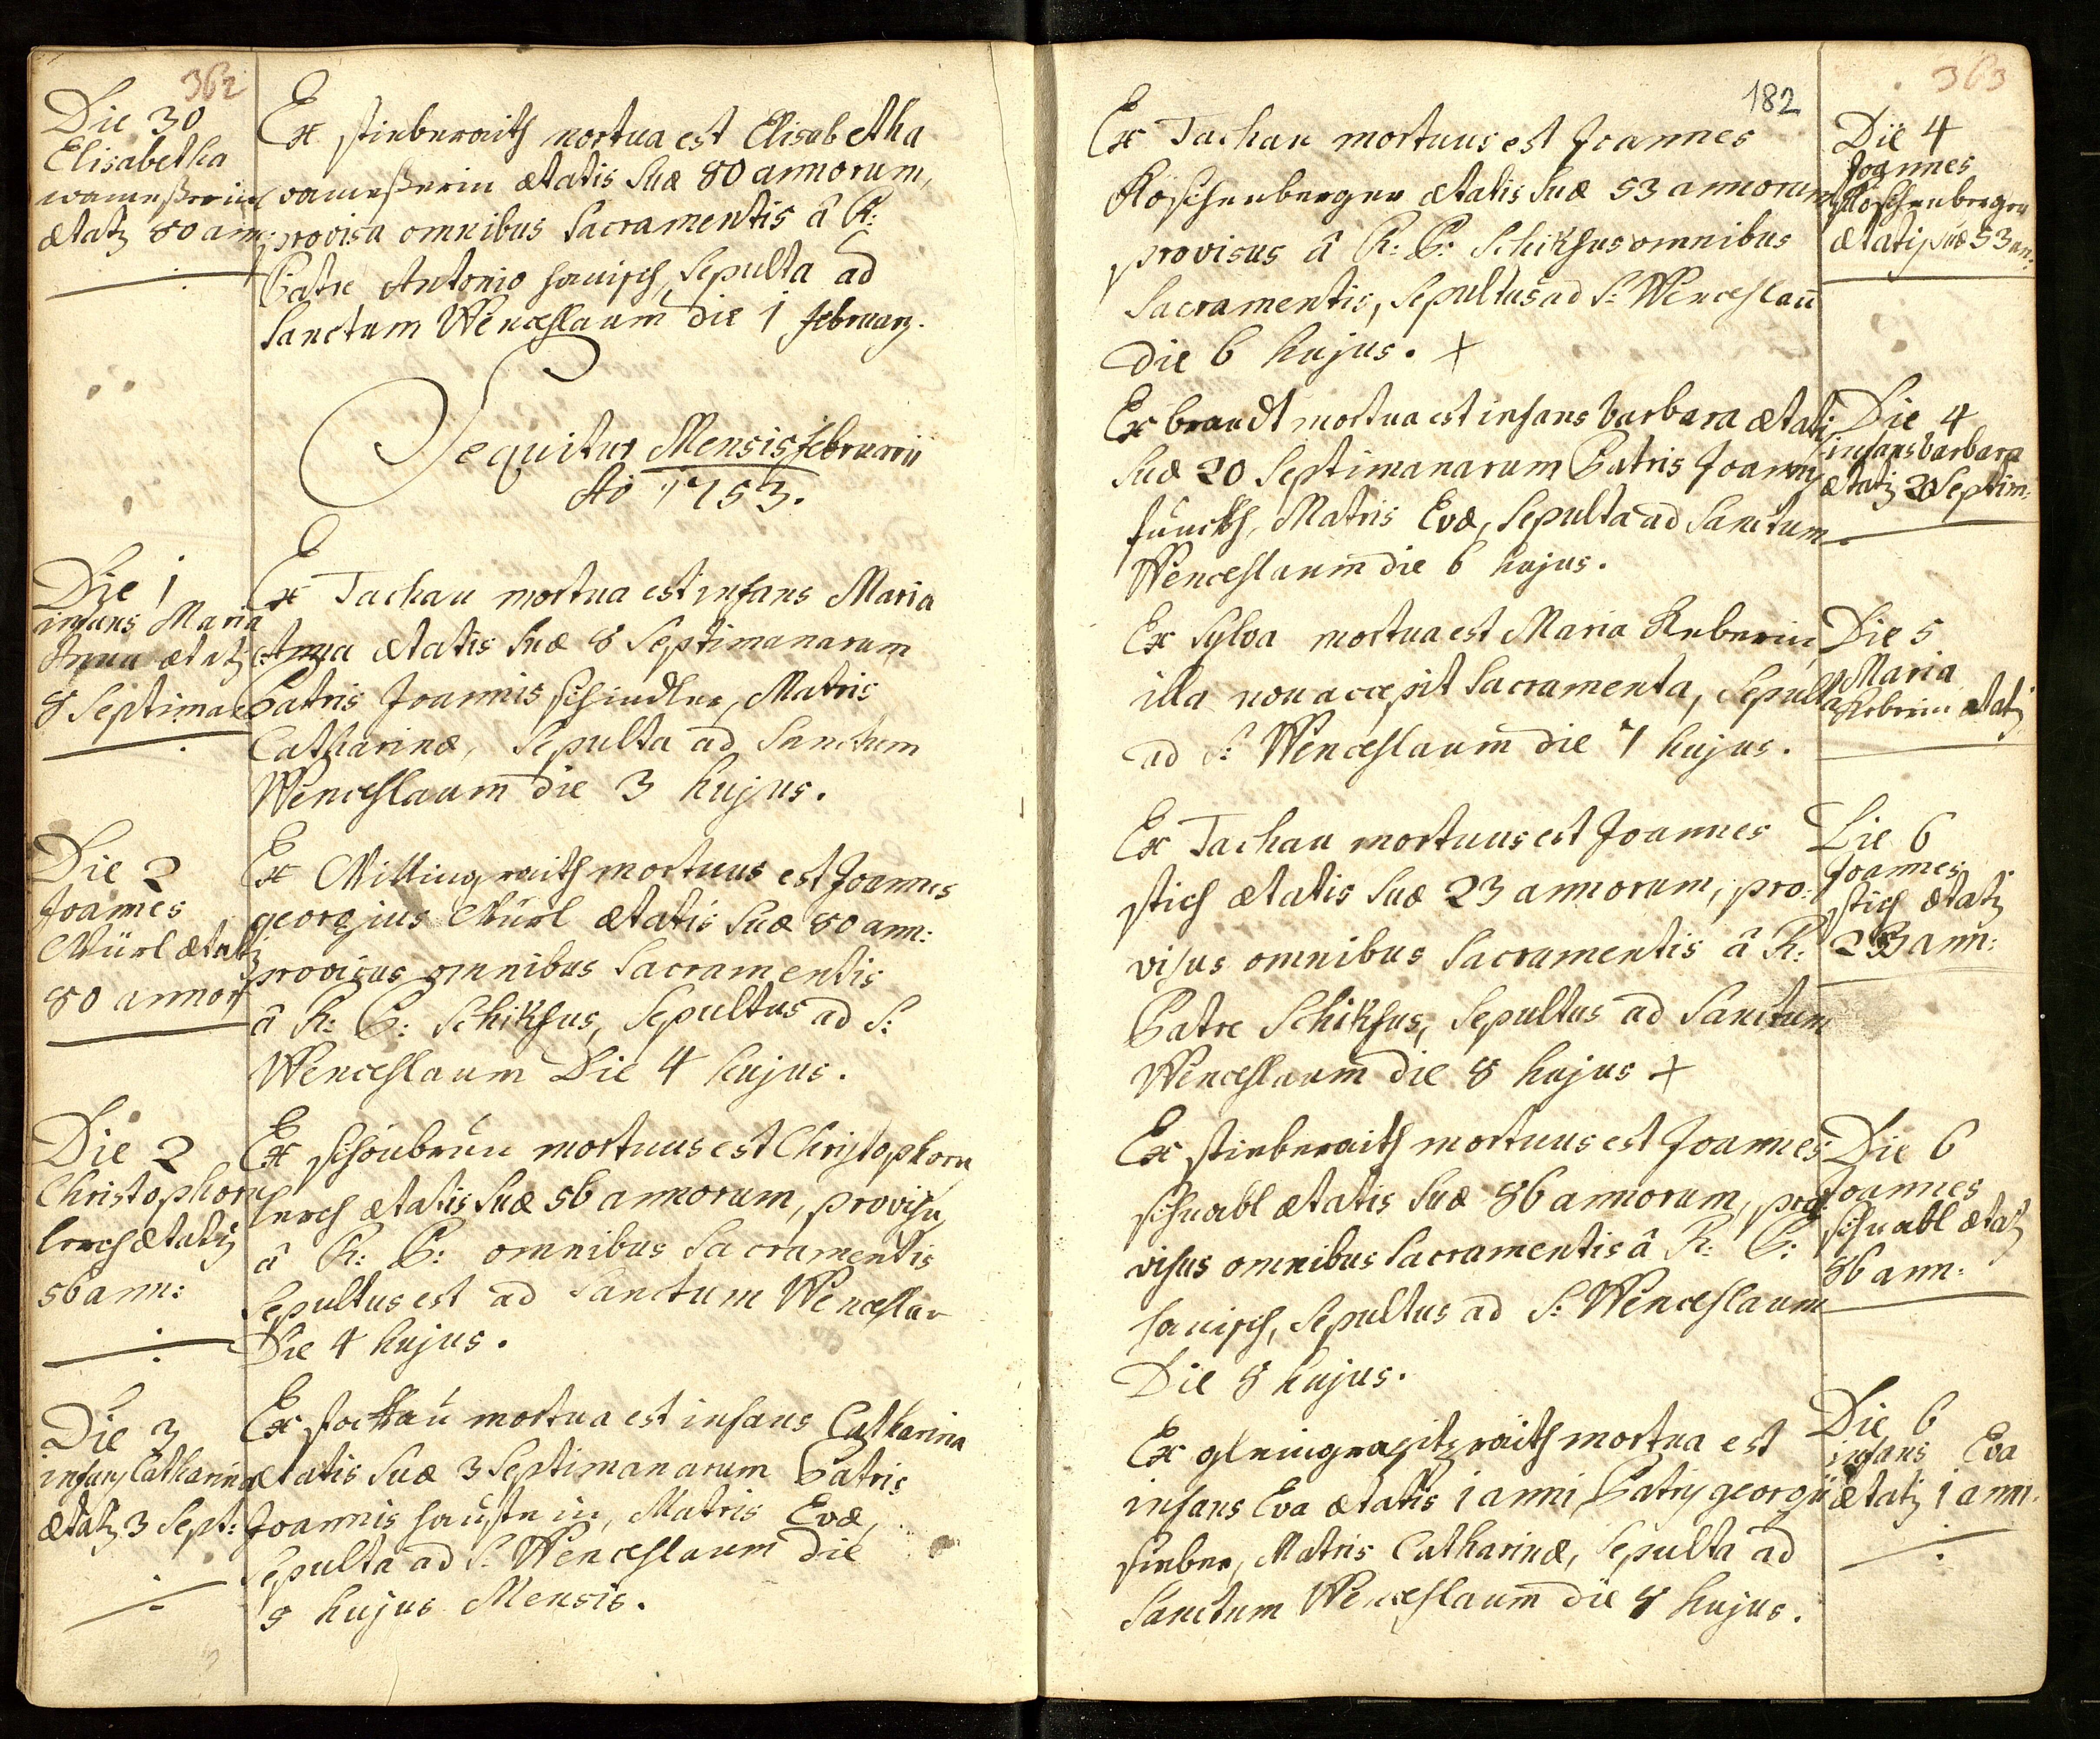 362
Die 30
Elisabetha
wameßerin
ætatis 80 ann:
Ex stieberaith mortua est Elisabetha
wameßerin ætatis Suæ 80 annorum,
provisa omnibus Sacramentis â R:
Patre Antonio hanisch, Sepulta ad
Sanctum Wenceslaum die 1 februarÿ.
Sequitur Mensis februarii
Ao 1753.
Die 1
infans Maria
Anna ætatis
8 Septimae
Ex Tachau mortua est infans Maria
Anna ætatis Suæ 8 Septimanarum
Patris Joannis schindler, Matris
Catharinæ, Sepulta ad Sanctum
Wenceslaum die 3 hujus.
Die 2
Joannes
Mürl ætatis
80 annor
Ex Wittingraith mortuus est Joannes
georgius Mürl ætatis Suæ 80 ann:
provisus omnibus Sacramentis
â R: P: Schiksus, Sepultus ad S:
Wenceslaum Die 4 hujus.
Die 2
Christophorus
lerch ætatis
56 ann:
Ex schönbrun mortuus est Christophorus
lerch ætatis Suæ 56 annorum, provisus
â R: P: omnibus Sacramentis
Sepultus est ad Sanctum Wenceslau
Die 4 hujus.
Die 3
infans Catharina
ætatis 3 Sept:
Ex mortua est infans Catharina
ætatis Suæ 3 Septimanarum Patris
Joannis Matris Evæ,
Sepulta ad S: Wenceslaum die
5 hujus Mensis.
363
182
Ex Tachau mortuus est Joannes
Roschenberger ætatis Suæ 53 annorum
provisus â R: P: Schiksus omnibus
Sacramentis, Sepultus ad S: Wenceslau
die 6 hujus. +
Die 4
Joannes
Roschenberger
ætatis suæ 53 an:
Ex brandt mortua est infans barbara ætatis
Suæ 20 Septimanarum Patris Joannis
funckh, Matris Evæ, Sepulta ad Sanctum
Wenceslaum die 6 hujus.
Die 4
infans barbara
ætatis 20 Septim:
Ex Sylva mortua est Maria Reberin
illa non accepit Sacramenta, Sepulta
ad S: Wenceslaum die 7 hujus.
Die 5
Maria
Reberin ætatis
Ex Tachau mortuus est Joannes
stich ætatis Suæ 23 annorum, pro:
visus omnibus Sacramentis â R:
Patre Schiksus, Sepultus ad Sanctum
Wenceslaum die 8 hujus +
Die 6
Joannes
stich ætatis
23 ann:
Ex stieberaith mortuus est Joannes
schnabl ætatis Suæ 86 annorum, pro:
visus omnibus Sacramentis â R: P:
hanisch, Sepultus ad S: Wenceslaum
Die 8 hujus.
Die 6
Joannes
schnabl ætatis
86 ann:
Ex mortua est
infans Eva ætatis 1 anni, Patris georgii
sieber, Matris Catharinæ, Sepulta ad
Sanctum Wenceslaum die 8 hujus.
Die 6
infans Eva
ætatis 1 anni.